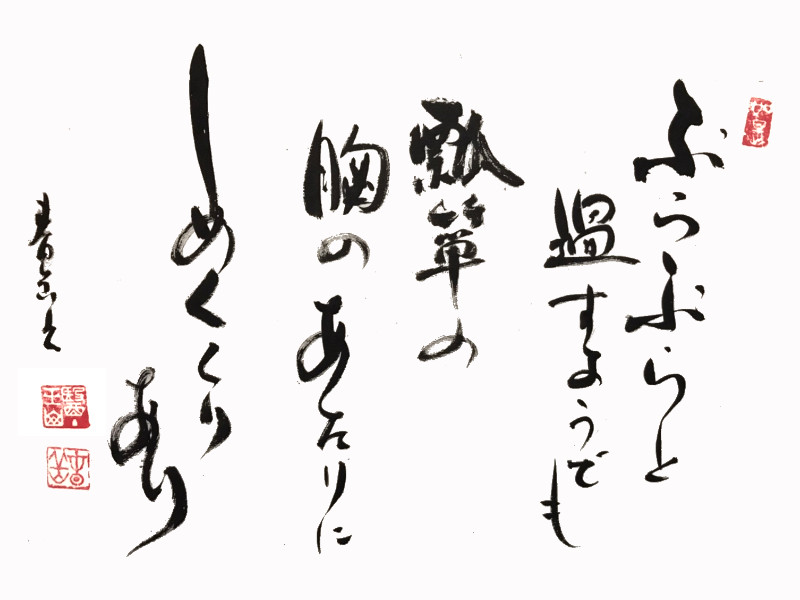 ぶらぶらと
過すようでも
瓢箪の
胸のあたりに
しめくくりあり